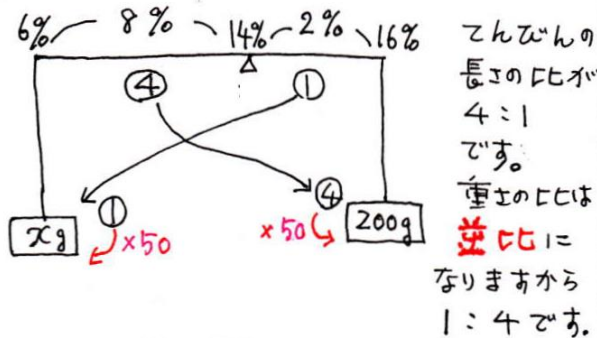 6% 8% 14% 2% 16%
④ ①
① ④
xg ×50 ×50 200g
てんびんの
長さの比が
4:1
です。
重さの比は
逆比に
なりますから
1:4です。